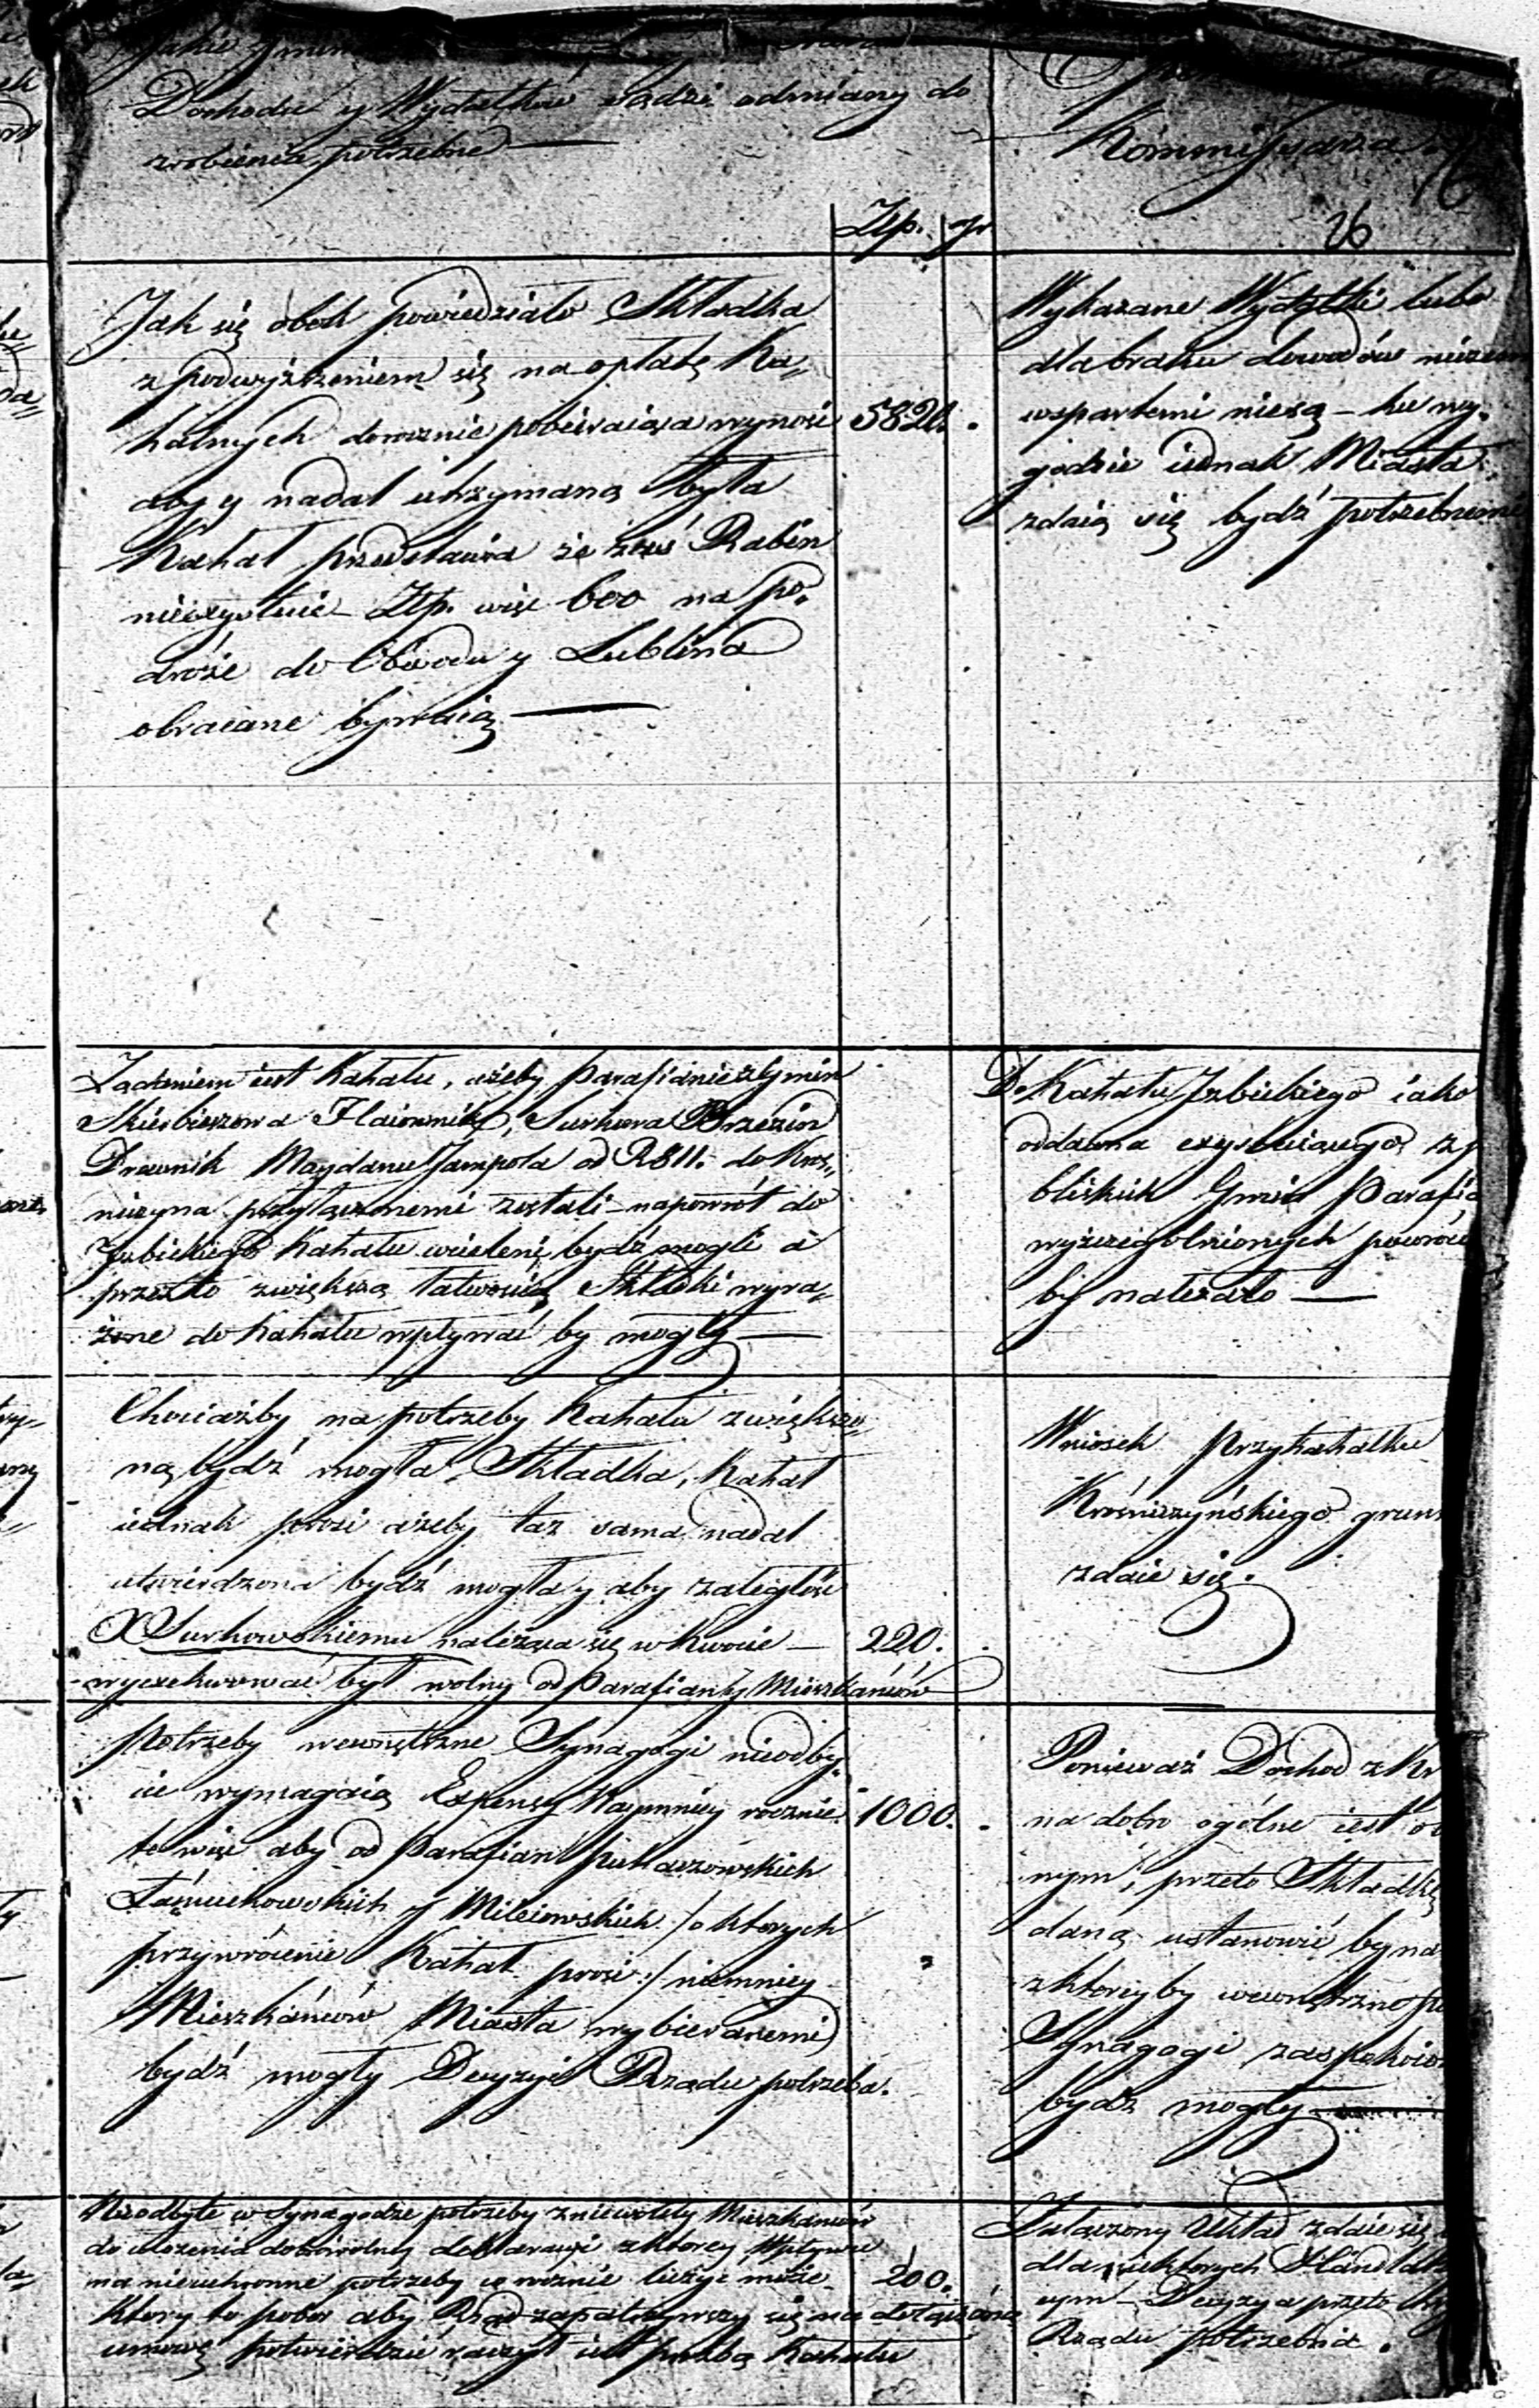 Jakie
Dochodu y Wydatków sądzi odmiany do
zrobienia potrzebne —
Kommissarza
Złp. gr
26
Jak się obok powiedziało Składka
z podwyższeniem się na opłatę Ka„
halnych dorocznie pobieraiąca wynosi 5820.
aby y nadal utrzymaną była
Kahał przedstawia że zaś Rabin
nieexystuie – Złp. więc 600 na po„
dróże do Obwodu y Lublina
obracane bywaią —
Wykazane Wydatki lubo
dla braku dowodów
wspartemi niesą – ku wy„
godzie iednak Miasta
zdaią się bydź potrzebnemi
Żądaniem iest Kahału, ażeby Parafianie z Gmin
Skierbieszowa Ilaiownik, Surhowa Brzezin
Drewnik Maydanu Jampola od R 811. do Kraś„
niczyna przyłączonemi zostali – napowrót do
Izbickiego Kahału wcieleni bydź mogli a
przezto zwiększą łatwością Składki wyra„
żone do Kahału wpływać by mogły —
Do Kahału Izbickiego iako
oddawna exystuiącego z
bliskich Gmin Parafia
wyżej powróc
by należało —
Chociażby na potrzeby Kahału zwiększo„
ną bydź mogła Składka, Kahał
iednak prosi ażeby taż sama nadal
utwierdzona bydź mogła y aby zaległość
X Surhowskiemu należąca się w kwocie — 220.
wyexekwować był wolny od Parafian y Mieszkańców
Wniosek Przykahałku
Kraśniczyńskiego grun
zdaie się.
Potrzeby wewnętrzne Synagogi nieodby„
cie wymagaią Expensy Naymniey rocznie 1000.
te więc aby od Parafian Piekaszowskich
Łańcuchowskich y Mileiowskich /: o których
przywrócenie Kahał prosi :/ niemniey
Mieszkańców Miasta wybieranemi
bydź mogły Decyzyi Rządu potrzeba.
Ponieważ Dochod z
na dobro ogólne iest
nym, przeto Składkę
daną ustanowić by na
z którey by wewnętrzne po
Synagogi zaspokoio
bydź mogły —
Nieodbyte w Synagodze potrzeby zniewoliły Mieszkańców
do złożenia dobrowolney deklaracyi z którey Wpływu
na nieuchronne potrzeby rocznie liczyć może 200.
który to pobor aby Rząd zapatrzywszy się na dołączoną
umowę potwierdzić raczył iest prośbą Kahału
Załączony Układ zdaie się
dla niektorych
cym – Decyzya przeto
Rządu potrzebna.